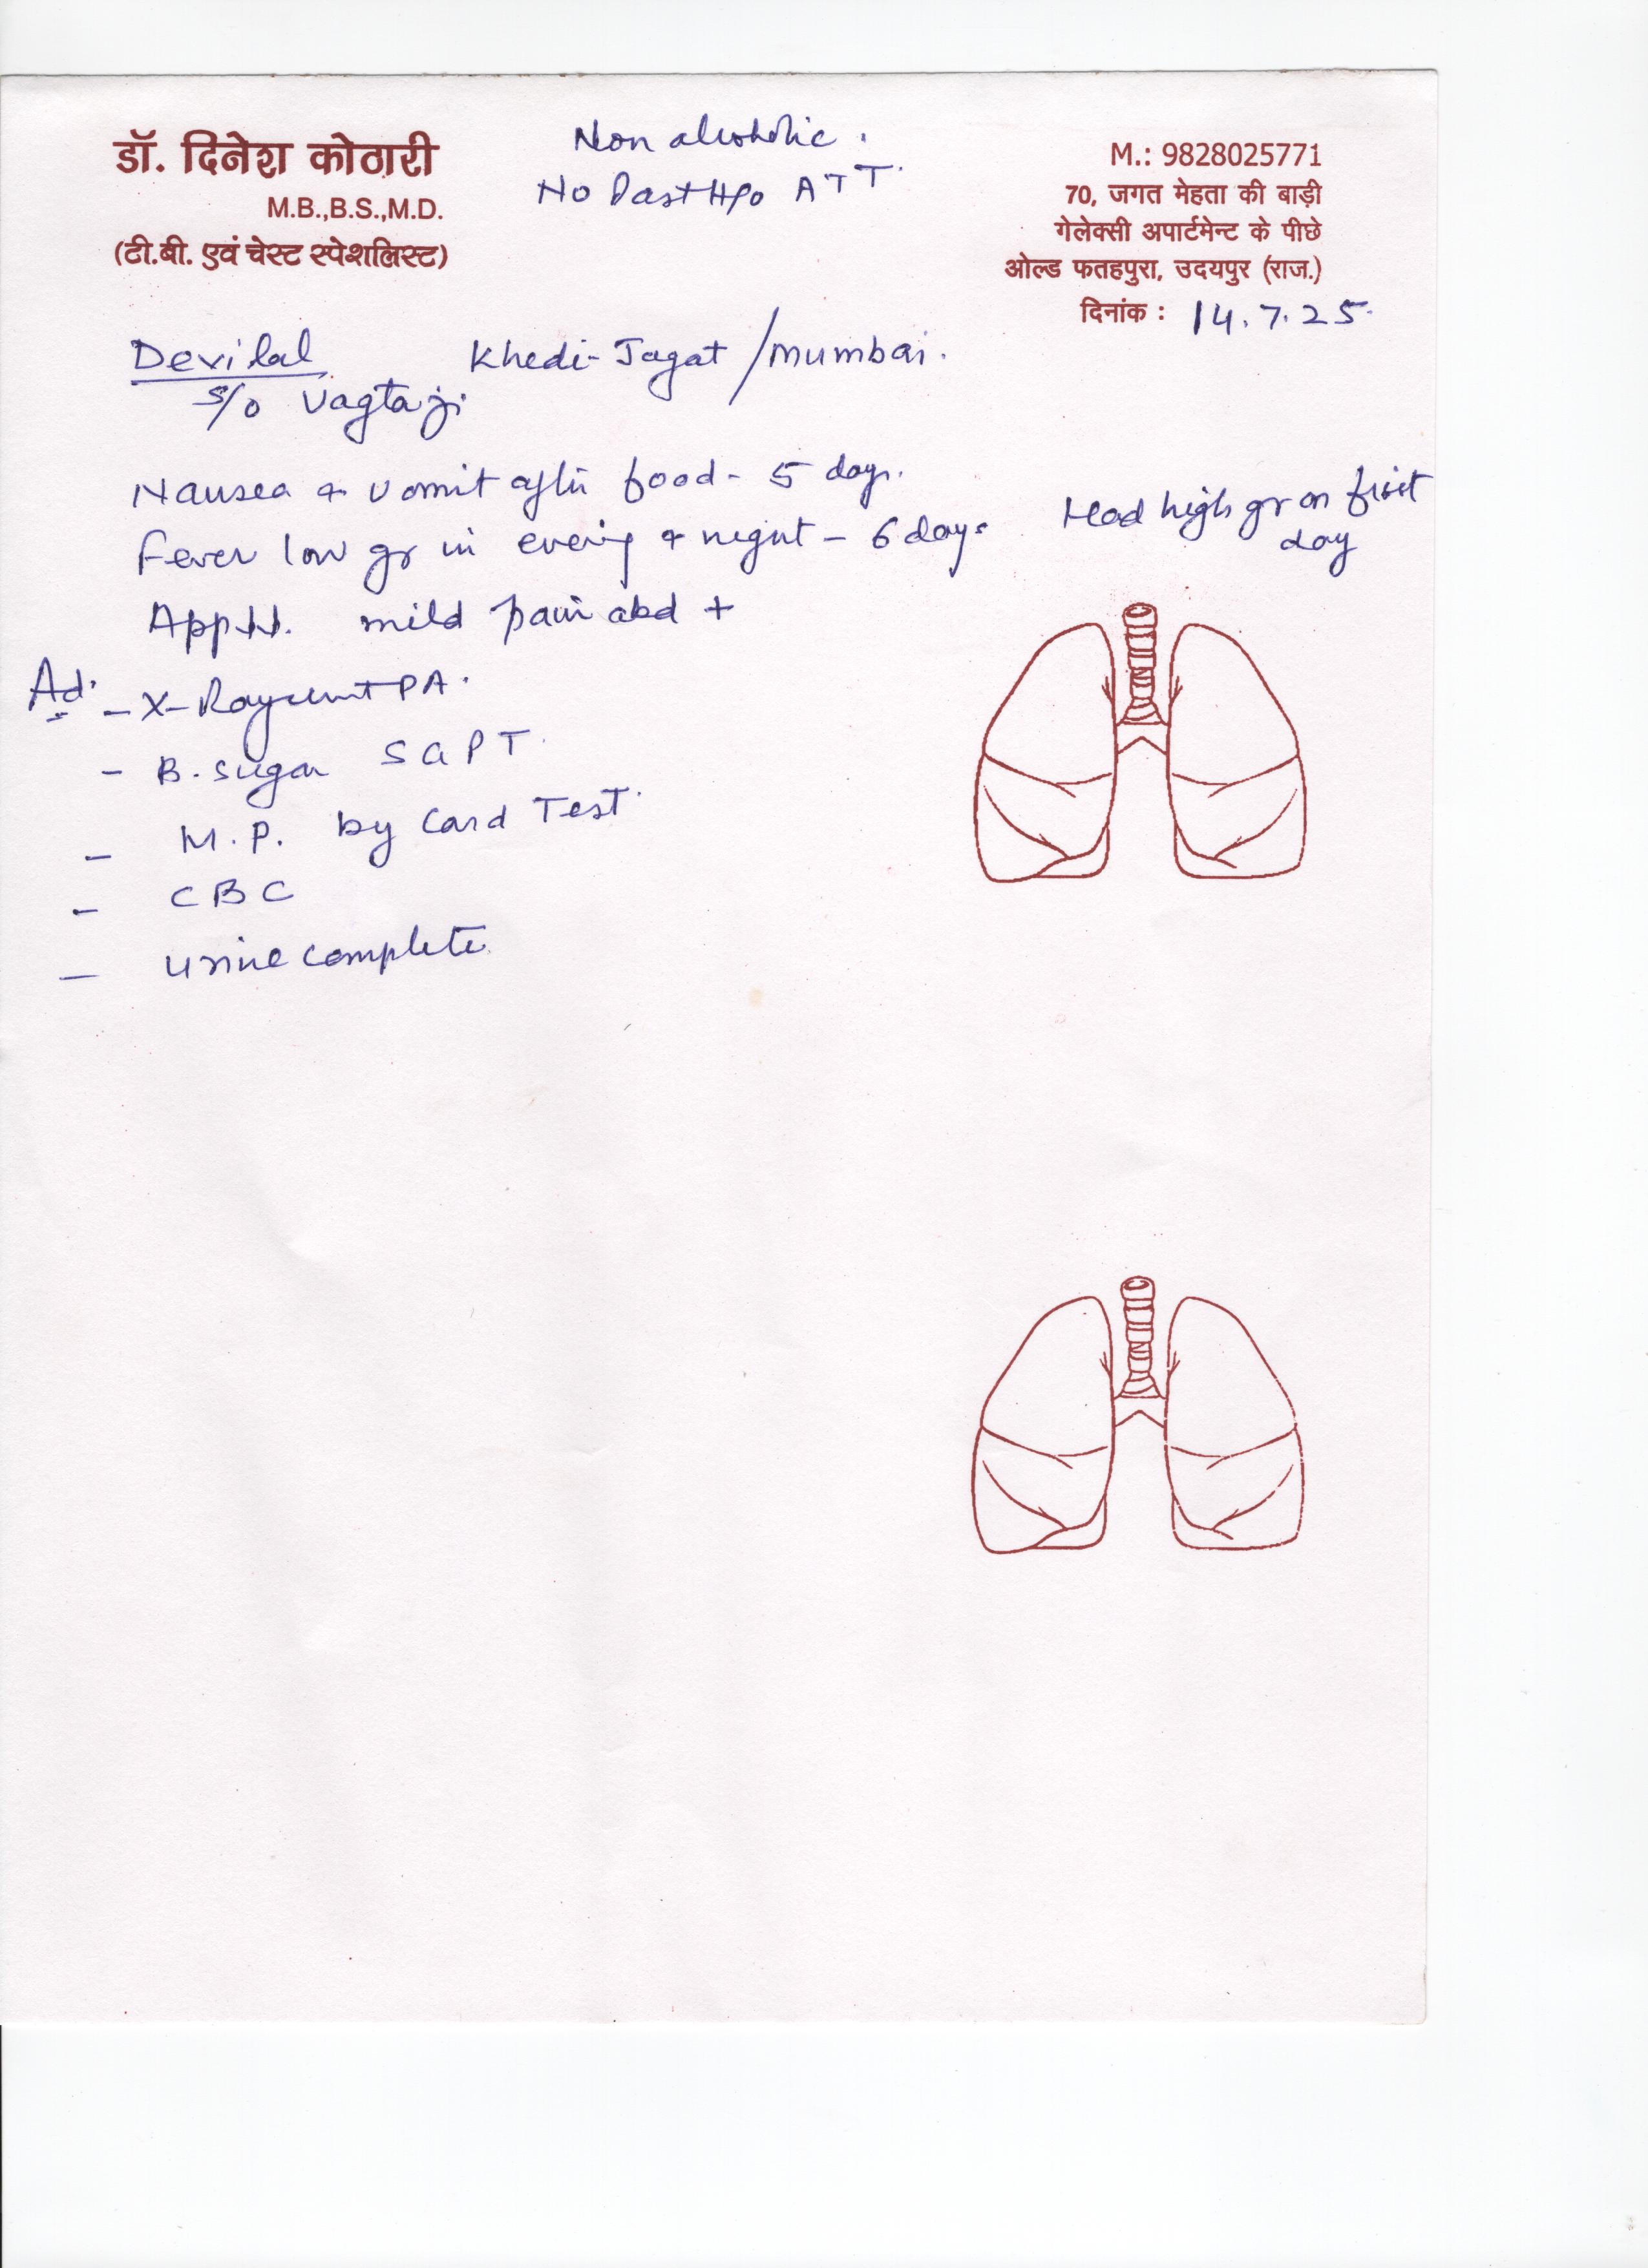 डॉ. दिनेश कोठारी
M.B.,B.S.,M.D.
(टी.बी. एवं चेस्ट स्पेशलिस्ट)
Non alcoholic.
No Past H/o ATT.
M.: 9828025771
70, जगत मेहता की बाड़ी
गेलेक्सी अपार्टमेन्ट के पीछे
ओल्ड फतहपुरा, उदयपुर (राज.)
दिनांक : 14.7.25.
Devilal Khedi-Jagat / Mumbai.
S/o Vagtaji
Nausea & vomit after food - 5 days.
Fever low gr in evening & night - 6 days Had high gr on first
day
App ↓↓. mild pain abd +
Ad.
- X-Ray chest PA.
- B. sugar SGPT.
- M.P. by Card Test.
- CBC
- Urine complete